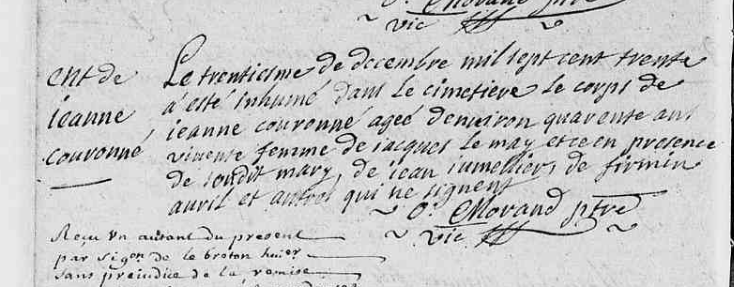 O. Morand ptre
vic
ent de
jeanne
couronné
Le trentiesme de decembre mil sept cent trente
a esté inhumé dans le cimetiere le corps de
jeanne couronné ageé denviron quarente ans
vivente femme de jacques le may et ce en presence
de soudit mary, de jean jumellier, de firmin
avril et autres qui ne signent
O. Morand ptre
vic
Reçu un autant du present
par sigon. de le breton huier
sans prejudice de la remise